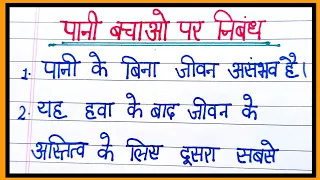 पानी बचाओ पर निबंध
1. पानी के बिना जीवन असंभव है।
2. यह हवा के बाद जीवन के
अस्तित्व के लिए दूसरा सबसे